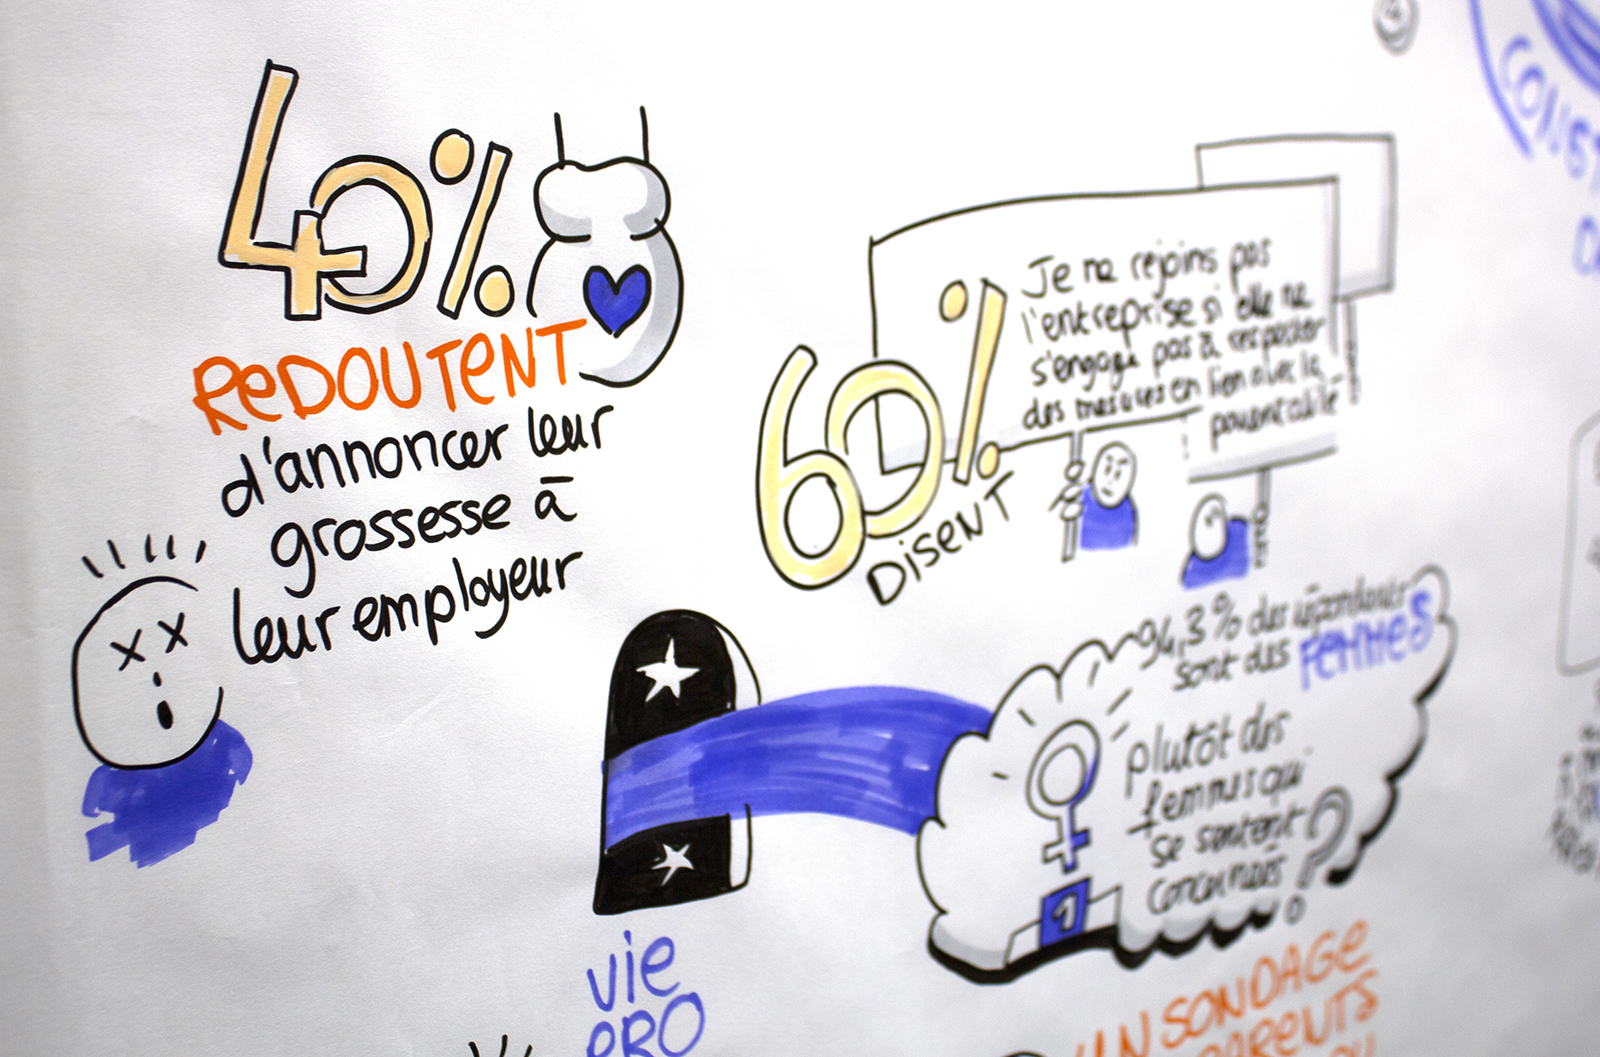 40%
REDOUTENT
d'annoncer leur
grossesse à
leur employeur
60%
DISENT
Je ne rejoins pas
l'entreprise si elle ne
s'engage pas à respecter
des mesures en lien avec la
parentalité
94,3% des répondants
sont des FEMMES
plutôt des
femmes qui
se sentent
concernées ?
1
vie
PRO
UN SONDAGE
PARENTS